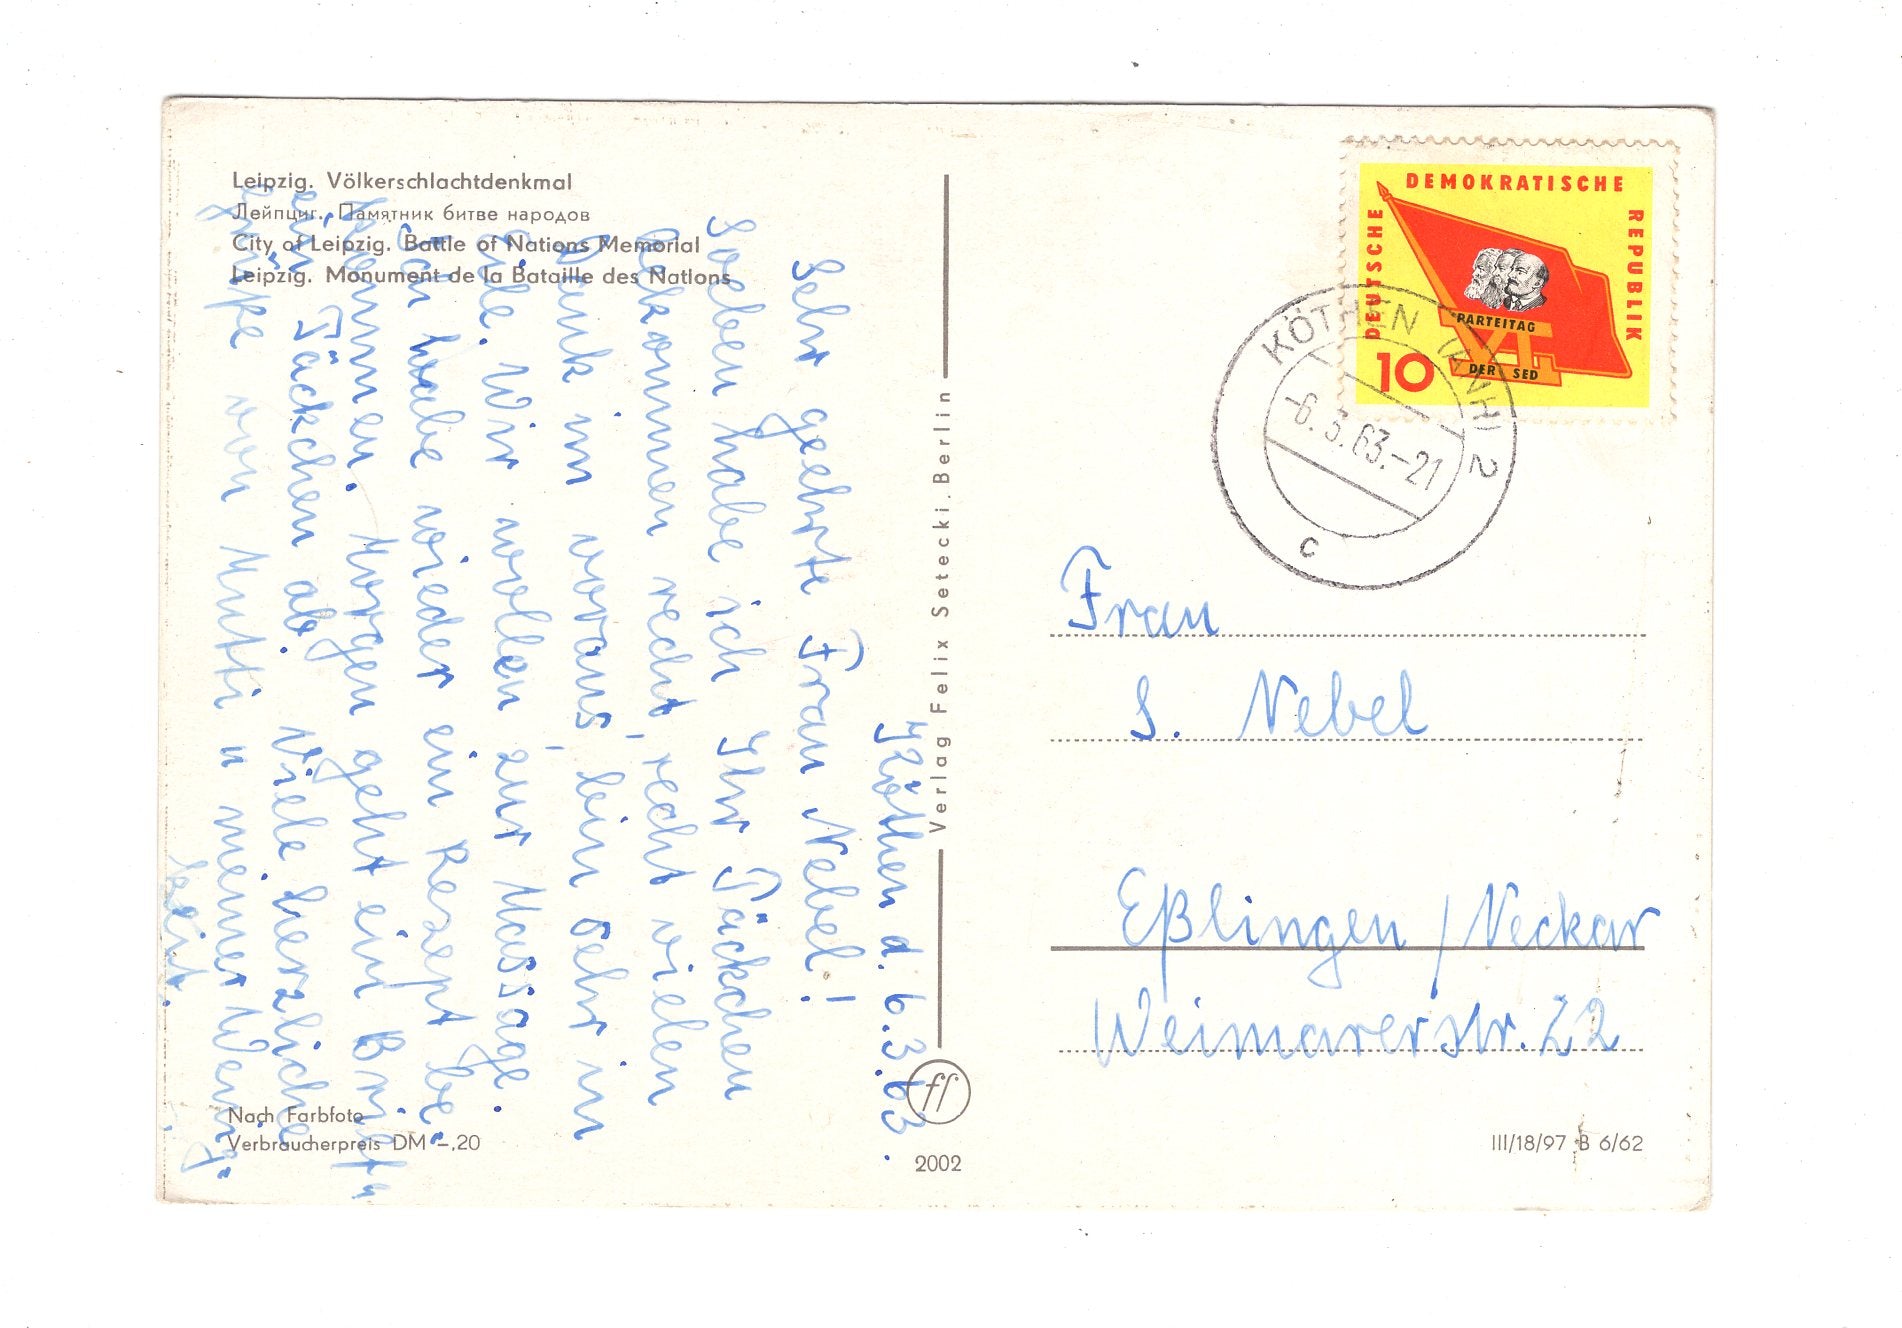 Leipzig. Völkerschlachtdenkmal
Лейпциг. Памятник битве народов
City of Leipzig. Battle of Nations Memorial
Leipzig. Monument de la Bataille des Nations
Köthen d. 6.3.63.
Sehr geehrte Frau Nebel!
Soeben habe ich Ihr Päckchen
bekommen recht, recht vielen
Dank im voraus, bin sehr in
Eile. Wir wollen zur Massage.
Ich habe wieder ein Rezept be-
kommen. Morgen geht ein Brief u.
ein Päckchen ab. Viele herzliche
Grüße von Mutti u meiner Wenig-
keit.
Verlag Felix Setecki, Berlin
ff
2002
Nach Farbfoto
Verbraucherpreis DM -,20
DEUTSCHE
DEMOKRATISCHE
REPUBLIK
VI
PARTEITAG
DER SED
10
KÖTHEN (ANH) 2
-6.3.63.-21
c
Frau
S. Nebel
Eßlingen / Neckar
Weimarerstr. 22
III/18/97 B 6/62